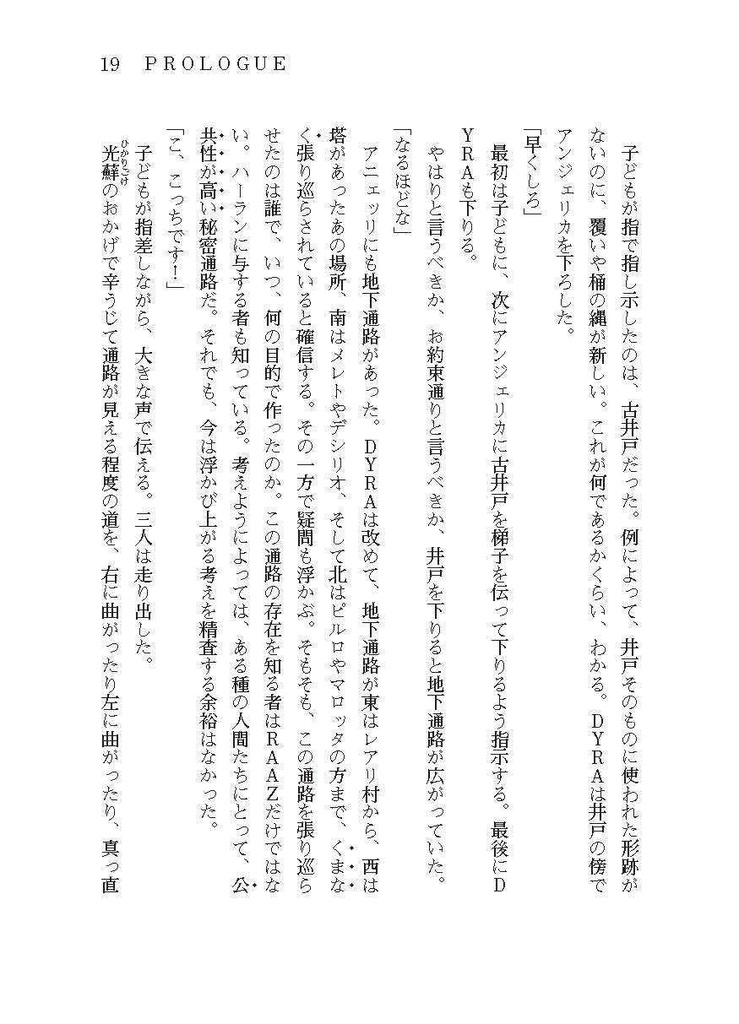 19 PROLOGUE
　子どもが指で指し示したのは、古井戸だった。例によって、井戸そのものに使われた形跡が
ないのに、覆いや桶の縄が新しい。これが何であるかくらい、わかる。DYRAは井戸の傍で
アンジェリカを下ろした。
「早くしろ」
　最初は子どもに、次にアンジェリカに古井戸を梯子を伝って下りるよう指示する。最後にD
YRAも下りる。
　やはりと言うべきか、お約束通りと言うべきか、井戸を下りると地下通路が広がっていた。
「なるほどな」
　アニェッリにも地下通路があった。DYRAは改めて、地下通路が東はレアリ村から、西は
塔があったあの場所、南はメレトやデシリオ、そして北はピルロやマロッタの方まで、くまな
く張り巡らされていると確信する。その一方で疑問も浮かぶ。そもそも、この通路を張り巡ら
せたのは誰で、いつ、何の目的で作ったのか。この通路の存在を知る者はRAAZだけではな
い。ハーランに与する者も知っている。考えようによっては、ある種の人間たちにとって、公
共性が高い秘密通路だ。それでも、今は浮かび上がる考えを精査する余裕はなかった。
「こ、こっちです！」
　子どもが指差しながら、大きな声で伝える。三人は走り出した。
　光蘚のおかげで辛うじて通路が見える程度の道を、右に曲がったり左に曲がったり、真っ直
ひかりごけ